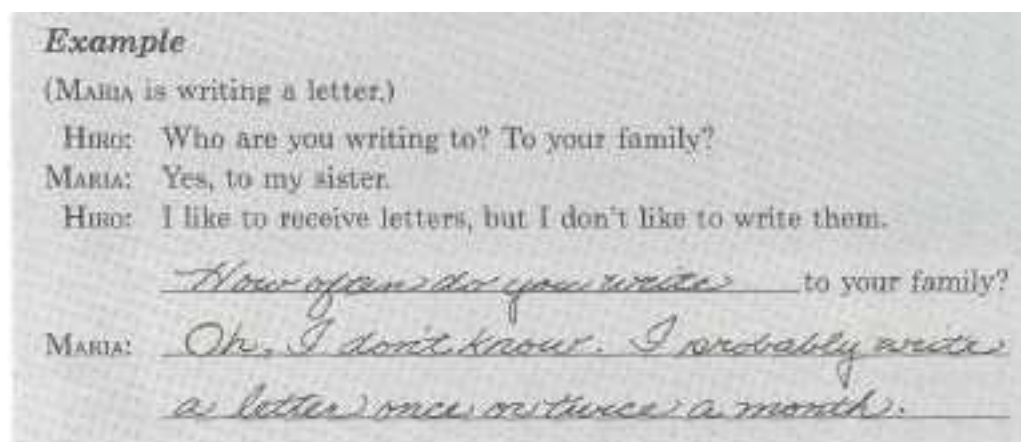 Example
(MARIA is writing a letter.)
HIRO: Who are you writing to? To your family?
MARIA: Yes, to my sister.
HIRO: I like to receive letters, but I don't like to write them.
How often do you write to your family?
MARIA: Oh, I don't know. I probably write
a letter once or twice a month.